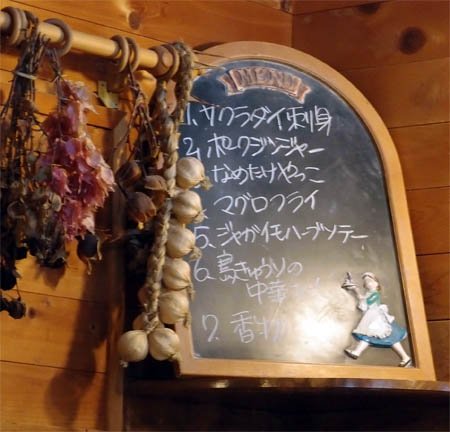 MENU
1. サクラダイ刺身
2. ポークジンジャー
なめたけやっこ
マグロフライ
5. ジャガイモハーブソテー
6. 島きゅうりの
中華
7. 香物